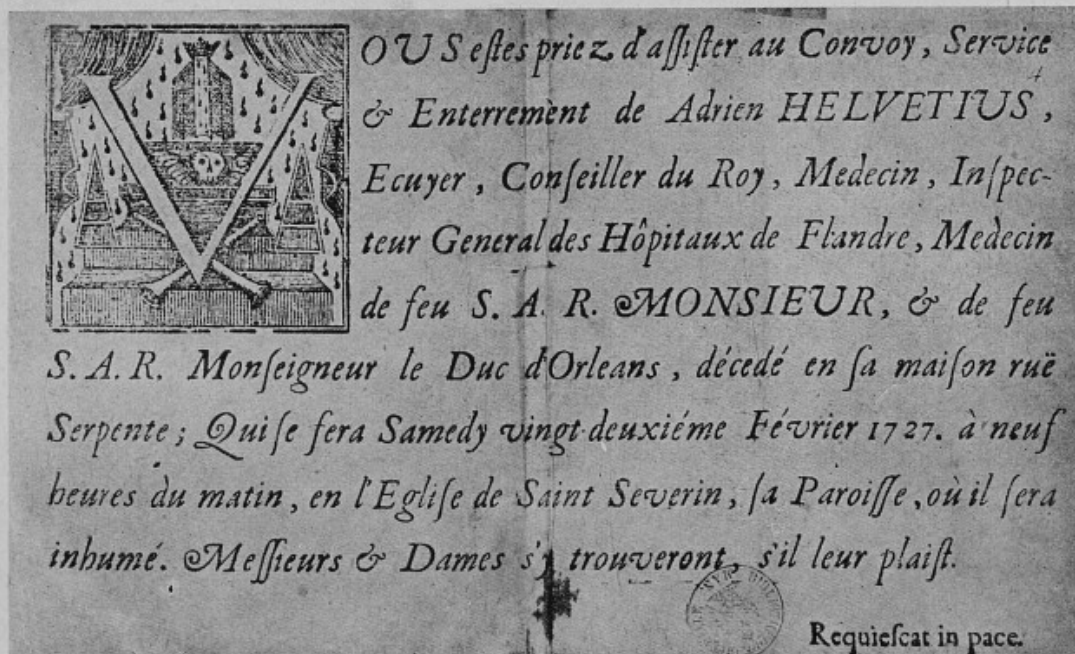 VOUS eſtes priez d'aſſiſter au Convoy, Service
& Enterrement de Adrien HELVETIUS,
Ecuyer, Conſeiller du Roy, Medecin, Inſpec-
teur General des Hôpitaux de Flandre, Medecin
de feu S. A. R. MONSIEUR, & de feu
S. A. R. Monſeigneur le Duc d'Orleans, décedé en ſa maiſon ruë
Serpente; Qui ſe fera Samedy vingt-deuxiéme Février 1727. à neuf
heures du matin, en l'Egliſe de Saint Severin, ſa Paroiſſe, où il ſera
inhumé. Meſſieurs & Dames s'y trouveront, s'il leur plaiſt.
Requieſcat in pace.